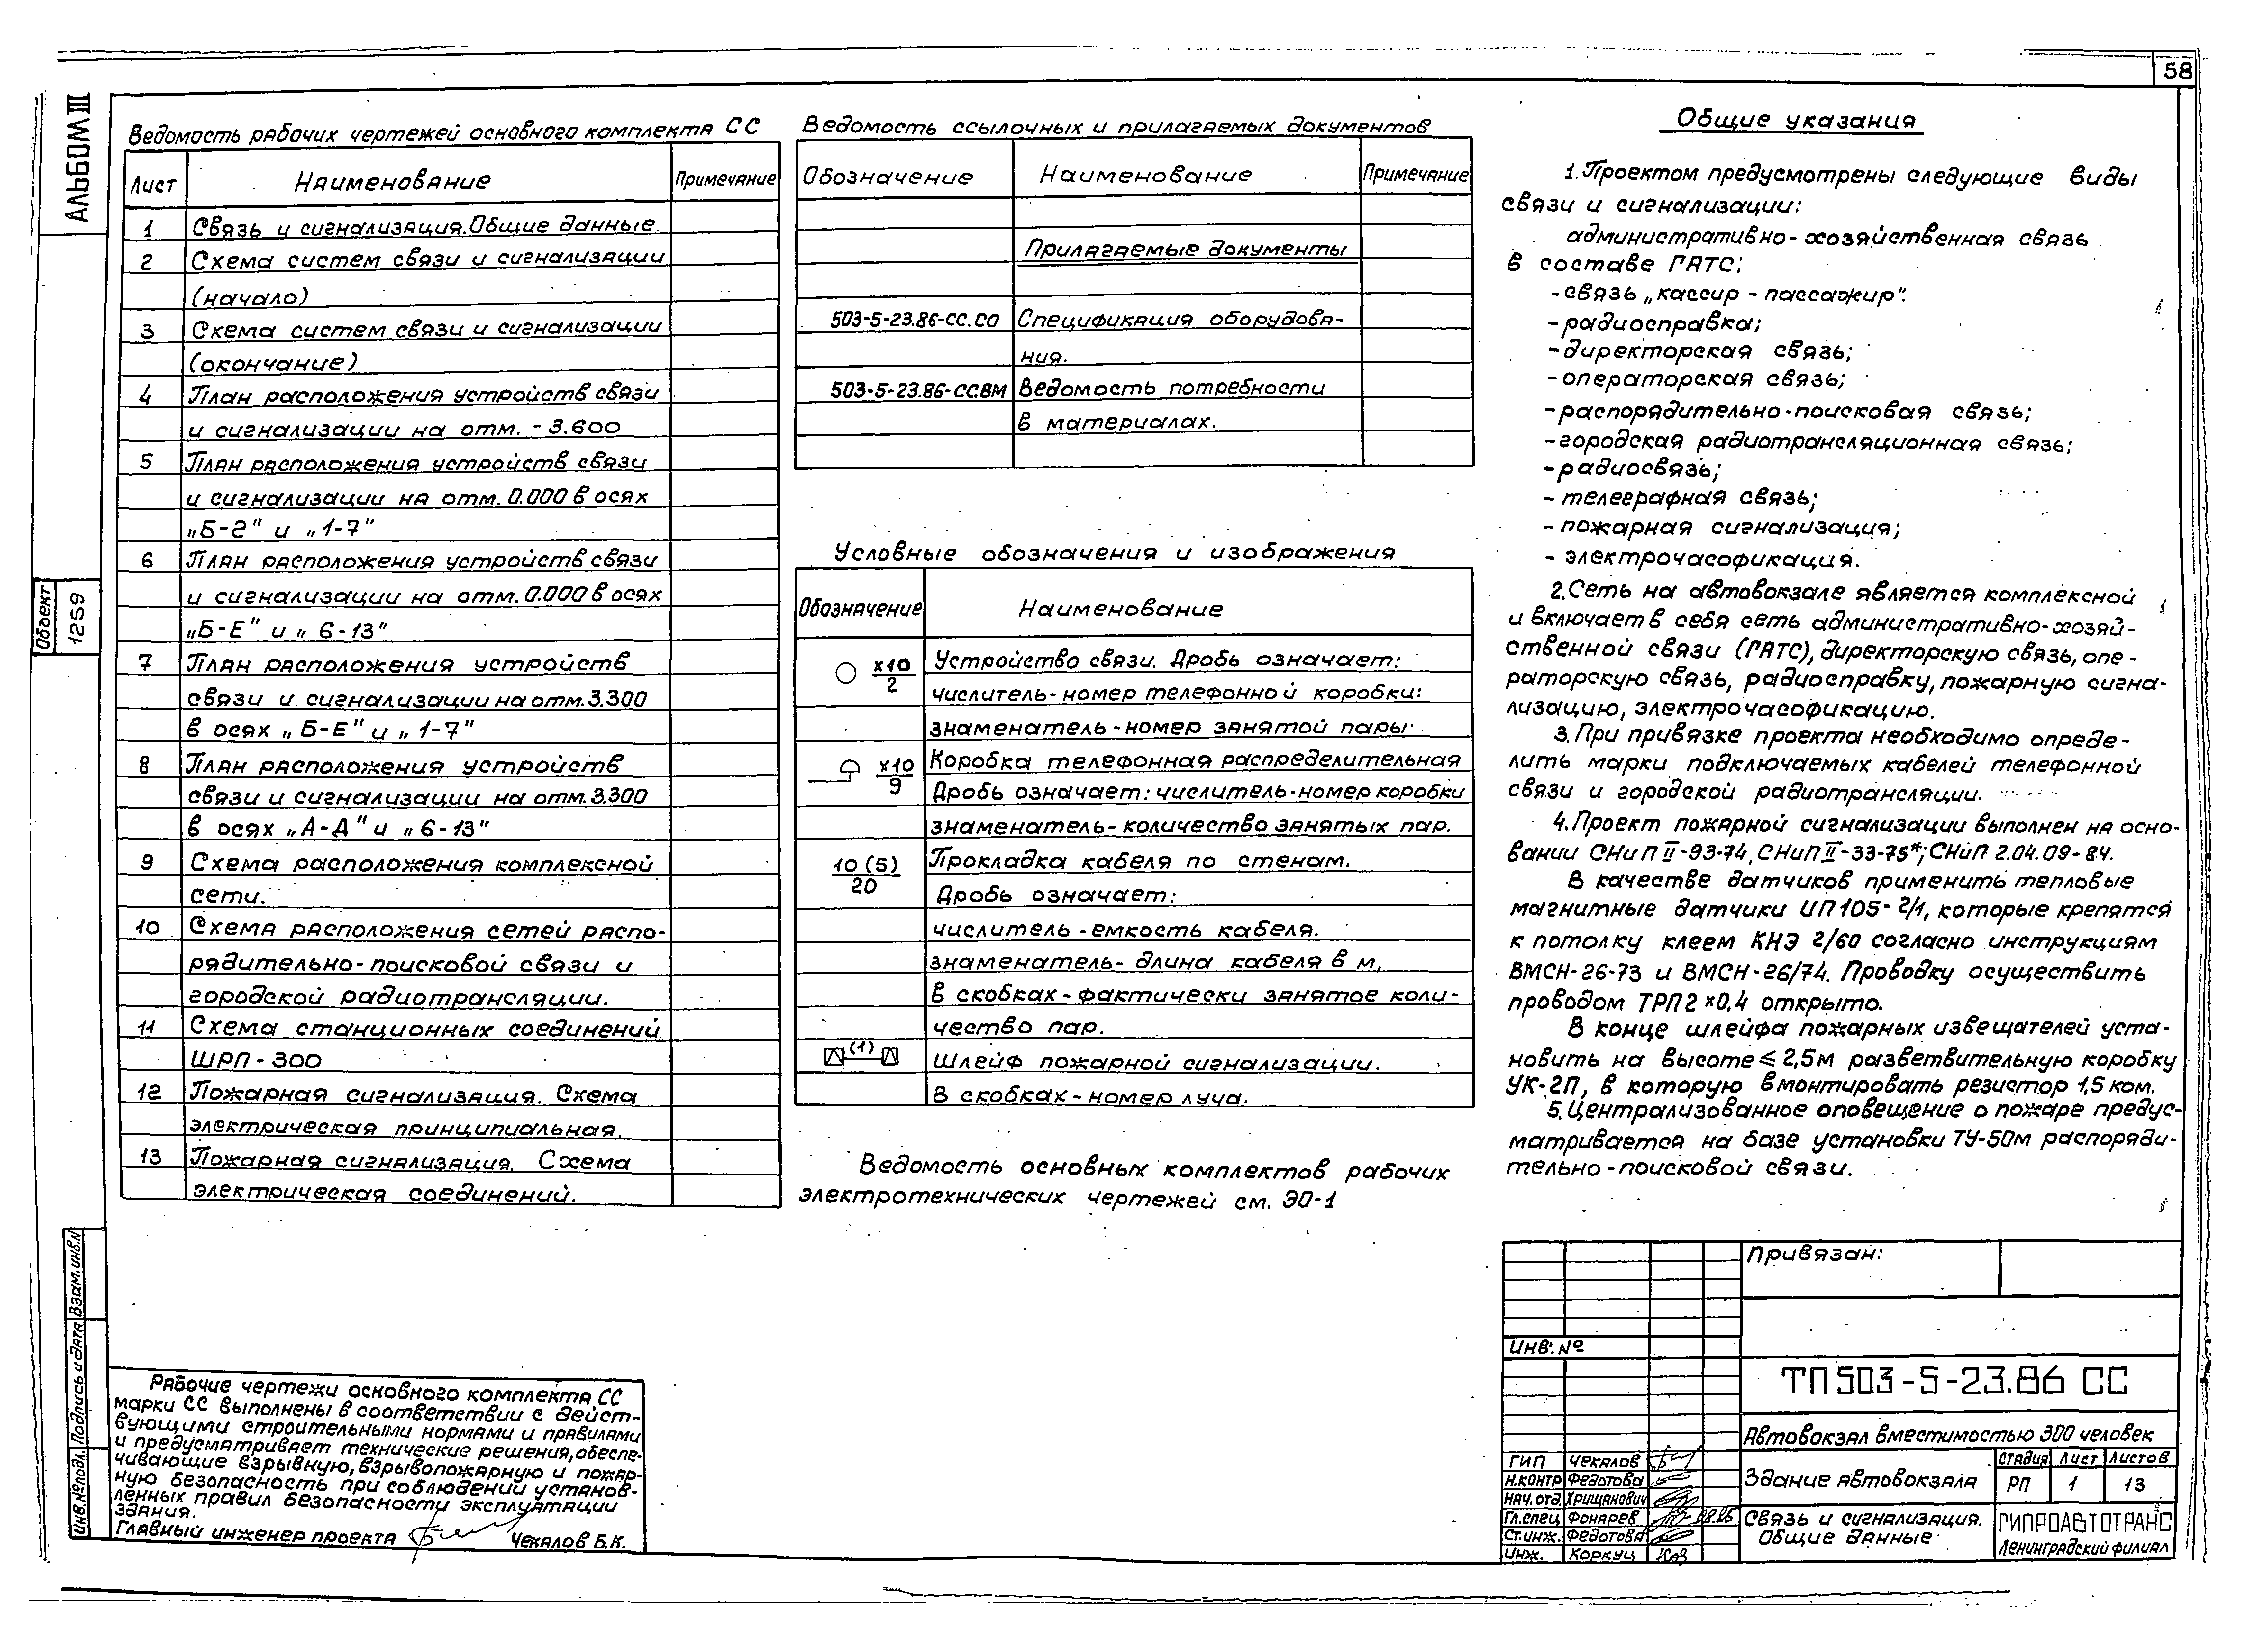 58
АЛЬБОМ III
Объект
1259
Взам.инв.N
Подпись и дата
Инв.№подл.
Ведомость рабочих чертежей основного комплекта СС
Лист Наименование Примечание
1 Связь и сигнализация. Общие данные.
2 Схема систем связи и сигнализации
(начало)
3 Схема систем связи и сигнализации
(окончание)
4 План расположения устройств связи
и сигнализации на отм. -3.600
5 План расположения устройств связи
и сигнализации на отм. 0.000 в осях
„Б-2" и „1-7"
6 План расположения устройств связи
и сигнализации на отм. 0.000 в осях
„Б-Е" и „6-13"
7 План расположения устройств
связи и сигнализации на отм. 3.300
в осях „Б-Е" и „1-7"
8 План расположения устройств
связи и сигнализации на отм. 3.300
в осях „А-Д" и „6-13"
9 Схема расположения комплексной
сети.
10 Схема расположения сетей распо-
рядительно-поисковой связи и
городской радиотрансляции.
11 Схема станционных соединений.
ШРП-300
12 Пожарная сигнализация. Схема
электрическая принципиальная.
13 Пожарная сигнализация. Схема
электрическая соединений.
Ведомость ссылочных и прилагаемых документов
Обозначение Наименование Примечание
Прилагаемые документы
503-5-23.86-СС.СО Спецификация оборудова-
ния.
503-5-23.86-СС.ВМ Ведомость потребности
в материалах.
Условные обозначения и изображения
Обозначение Наименование
х10
2
Устройство связи. Дробь означает:
числитель-номер телефонной коробки:
знаменатель-номер занятой пары.
х10
9
Коробка телефонная распределительная
Дробь означает: числитель-номер коробки
знаменатель-количество занятых пар.
10 (5)
20
Прокладка кабеля по стенам.
Дробь означает:
числитель-емкость кабеля.
знаменатель-длина кабеля в м,
в скобках-фактически занятое коли-
чество пар.
(1) Шлейф пожарной сигнализации.
В скобках-номер луча.
Ведомость основных комплектов рабочих
электротехнических чертежей см. ЭО-1
Общие указания
1. Проектом предусмотрены следующие виды
связи и сигнализации:
административно-хозяйственная связь
в составе ГАТС;
-связь „кассир-пассажир".
-радиосправка;
-директорская связь;
-операторская связь;
-распорядительно-поисковая связь;
-городская радиотрансляционная связь;
-радиосвязь;
-телеграфная связь;
-пожарная сигнализация;
- электрочасофикация.
2. Сеть на автовокзале является комплексной
и включает в себя сеть административно-хозяй-
ственной связи (ГАТС), директорскую связь, опе-
раторскую связь, радиосправку, пожарную сигна-
лизацию, электрочасофикацию.
3. При привязке проекта необходимо опреде-
лить марки подключаемых кабелей телефонной
связи и городской радиотрансляции.
4. Проект пожарной сигнализации выполнен на осно-
вании СНиП II-93-74, СНиП II-33-75*; СНиП 2.04.09-84.
В качестве датчиков применить тепловые
магнитные датчики ИП105-2/1, которые крепятся
к потолку клеем КНЭ 2/60 согласно инструкциям
ВМСН-26-73 и ВМСН-26/74. Проводку осуществить
проводом ТРП 2×0,4 открыто.
В конце шлейфа пожарных извещателей уста-
новить на высоте ≤ 2,5м разветвительную коробку
УК-2П, в которую вмонтировать резистор 1,5 ком.
5. Централизованное оповещение о пожаре предус-
матривается на базе установки ТУ-50м распоряди-
тельно-поисковой связи.
Рабочие чертежи основного комплекта СС
марки СС выполнены в соответствии с дейст-
вующими строительными нормами и правилами
и предусматривает технические решения, обеспе-
чивающие взрывную, взрывопожарную и пожар-
ную безопасность при соблюдении установ-
ленных правил безопасности эксплуатации
здания.
Главный инженер проекта Чекалов Б.К.
Привязан:
Инв.№
ТП 503-5-23.86 СС
Автовокзал вместимостью 300 человек
ГИП Чекалов
Н.контр Федотова
Нач.отд. Хрищанович
Гл.спец Фонарев 08.86
Ст.инж. Федотова
Инж. Коркуц
Здание автовокзала
Стадия Лист Листов
РП 1 13
Связь и сигнализация.
Общие данные
ГИПРОАВТОТРАНС
Ленинградский филиал